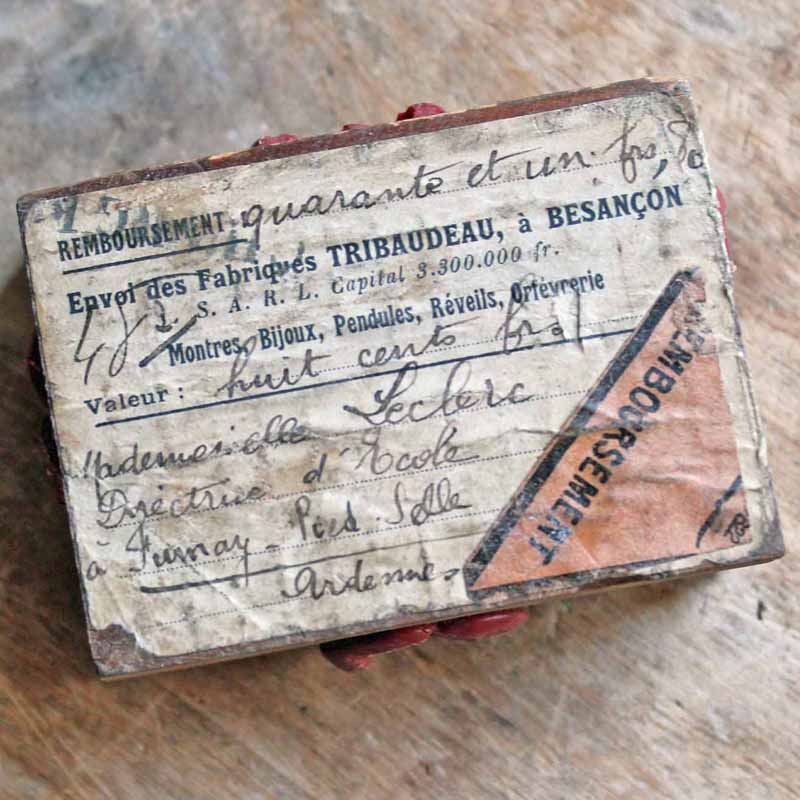 REMBOURSEMENT quarante et un frs, 80
Envoi des Fabriques TRIBAUDEAU, à BESANÇON
S. A. R. L. Capital 3.300.000 fr.
Montres, Bijoux, Pendules, Réveils, Orfèvrerie
Valeur : huit cents frs
Mademoiselle Leclerc
Directrice d'Ecole
à Fumay - Pied-Selle
Ardennes
REMBOURSEMENT